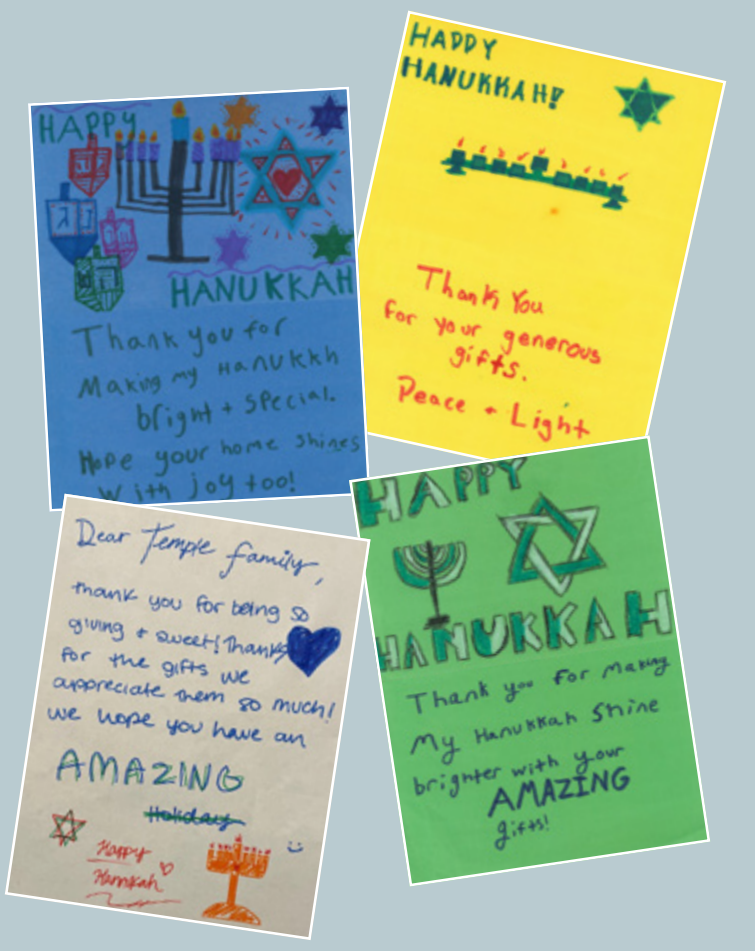 HAPPY
HANUKKAH
Thank you for
Making my Hanukkh
bright + special.
Hope your home shines
with joy too!
HAPPY
HANUKKAH!
Thank You
for your generous
gifts.
Peace + Light
Dear Temple family,
thank you for being so
giving + sweet! Thanks
for the gifts we
appreciate them so much!
we hope you have an
AMAZING
Holiday
Happy
Hannkah
HAPPY
HANUKKAH
Thank you for making
My Hanukkah Shine
brighter with your
AMAZING
gifts!